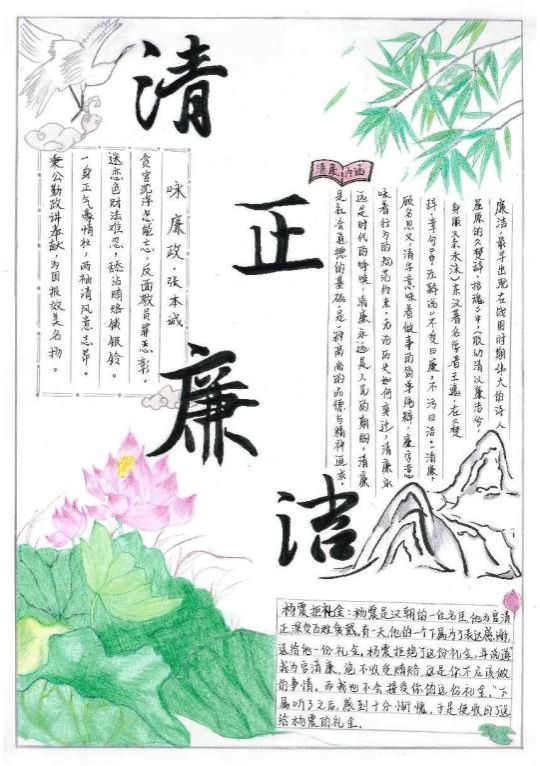 清
正
廉
洁
清廉内涵
廉洁，最早出现在战国时期伟大的诗人
屈原的《楚辞·招魂》中，《朕幼清以廉洁兮，
身服义未沫》东汉著名学者王逸，在《楚
辞·章句》中注释说"不受曰廉，不污曰洁。"清廉，
顾名思义，清字意味着做事的简单纯粹，廉字意
味着行为的规范约束。无论历史如何变迁，清廉永
远是时代的呼唤，清廉永远是人民的期盼。清廉
是社会道德的基础，是一种高尚的品德与精神追求。
咏廉政，张本诚
贪官沉浮怎能忘，反面教员罪恶彰。
迷恋色财法难忍，舔沾贿赂银铃。
一身正气豪情壮，两袖清风意志昂。
秉公勤政讲奉献，为国报效美名扬。
杨震拒礼金：杨震是汉朝的一位名臣，他为官清
正，深受百姓爱戴。有一天，他的一个下属为了表达感谢，
送给他一份礼金。杨震拒绝了这份礼金，并说道
我为官清廉，绝不收受贿赂，这是你不应该做
的事情。而我也不会接受你的这份礼金。"下
属听了之后，感到十分惭愧，于是便收回了送
给杨震的礼金。